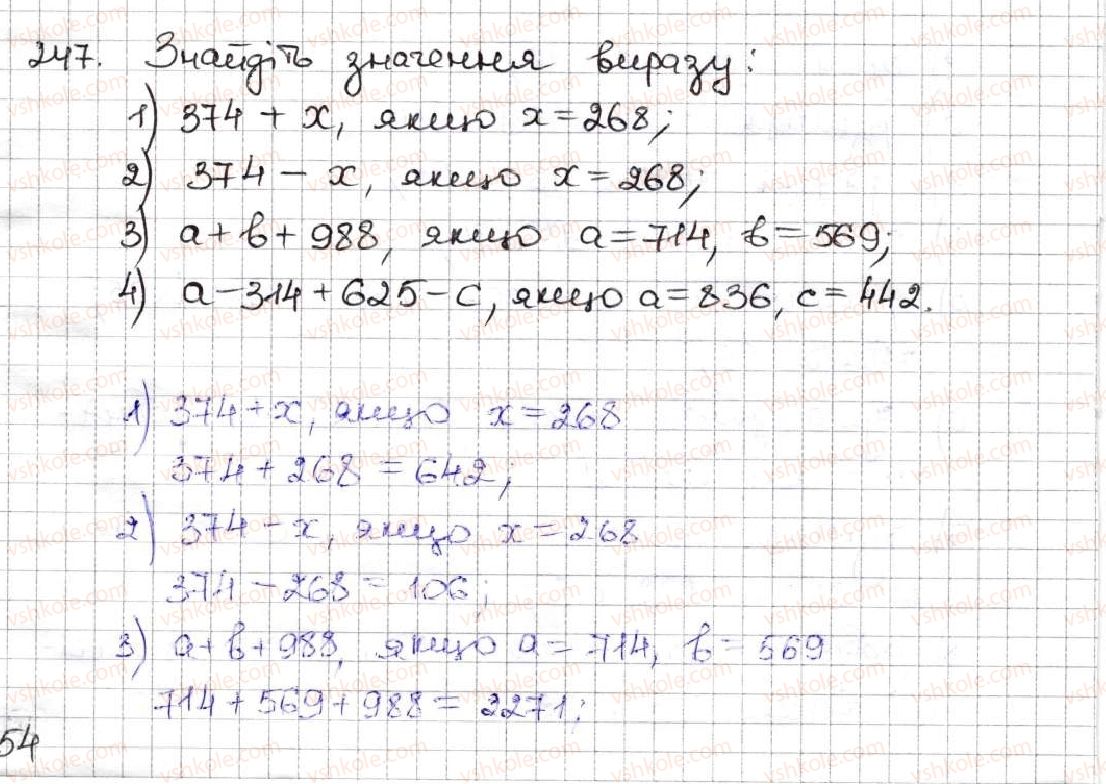 247. Знайдіть значення виразу:
1) 374 + x, якщо x = 268;
2) 374 - x, якщо x = 268;
3) a + b + 988, якщо a = 714, b = 569;
4) a - 314 + 625 - c, якщо a = 836, c = 442.
1) 374 + x, якщо x = 268
374 + 268 = 642;
2) 374 - x, якщо x = 268
374 - 268 = 106;
3) a + b + 988, якщо a = 714, b = 569
714 + 569 + 988 = 2271;
54